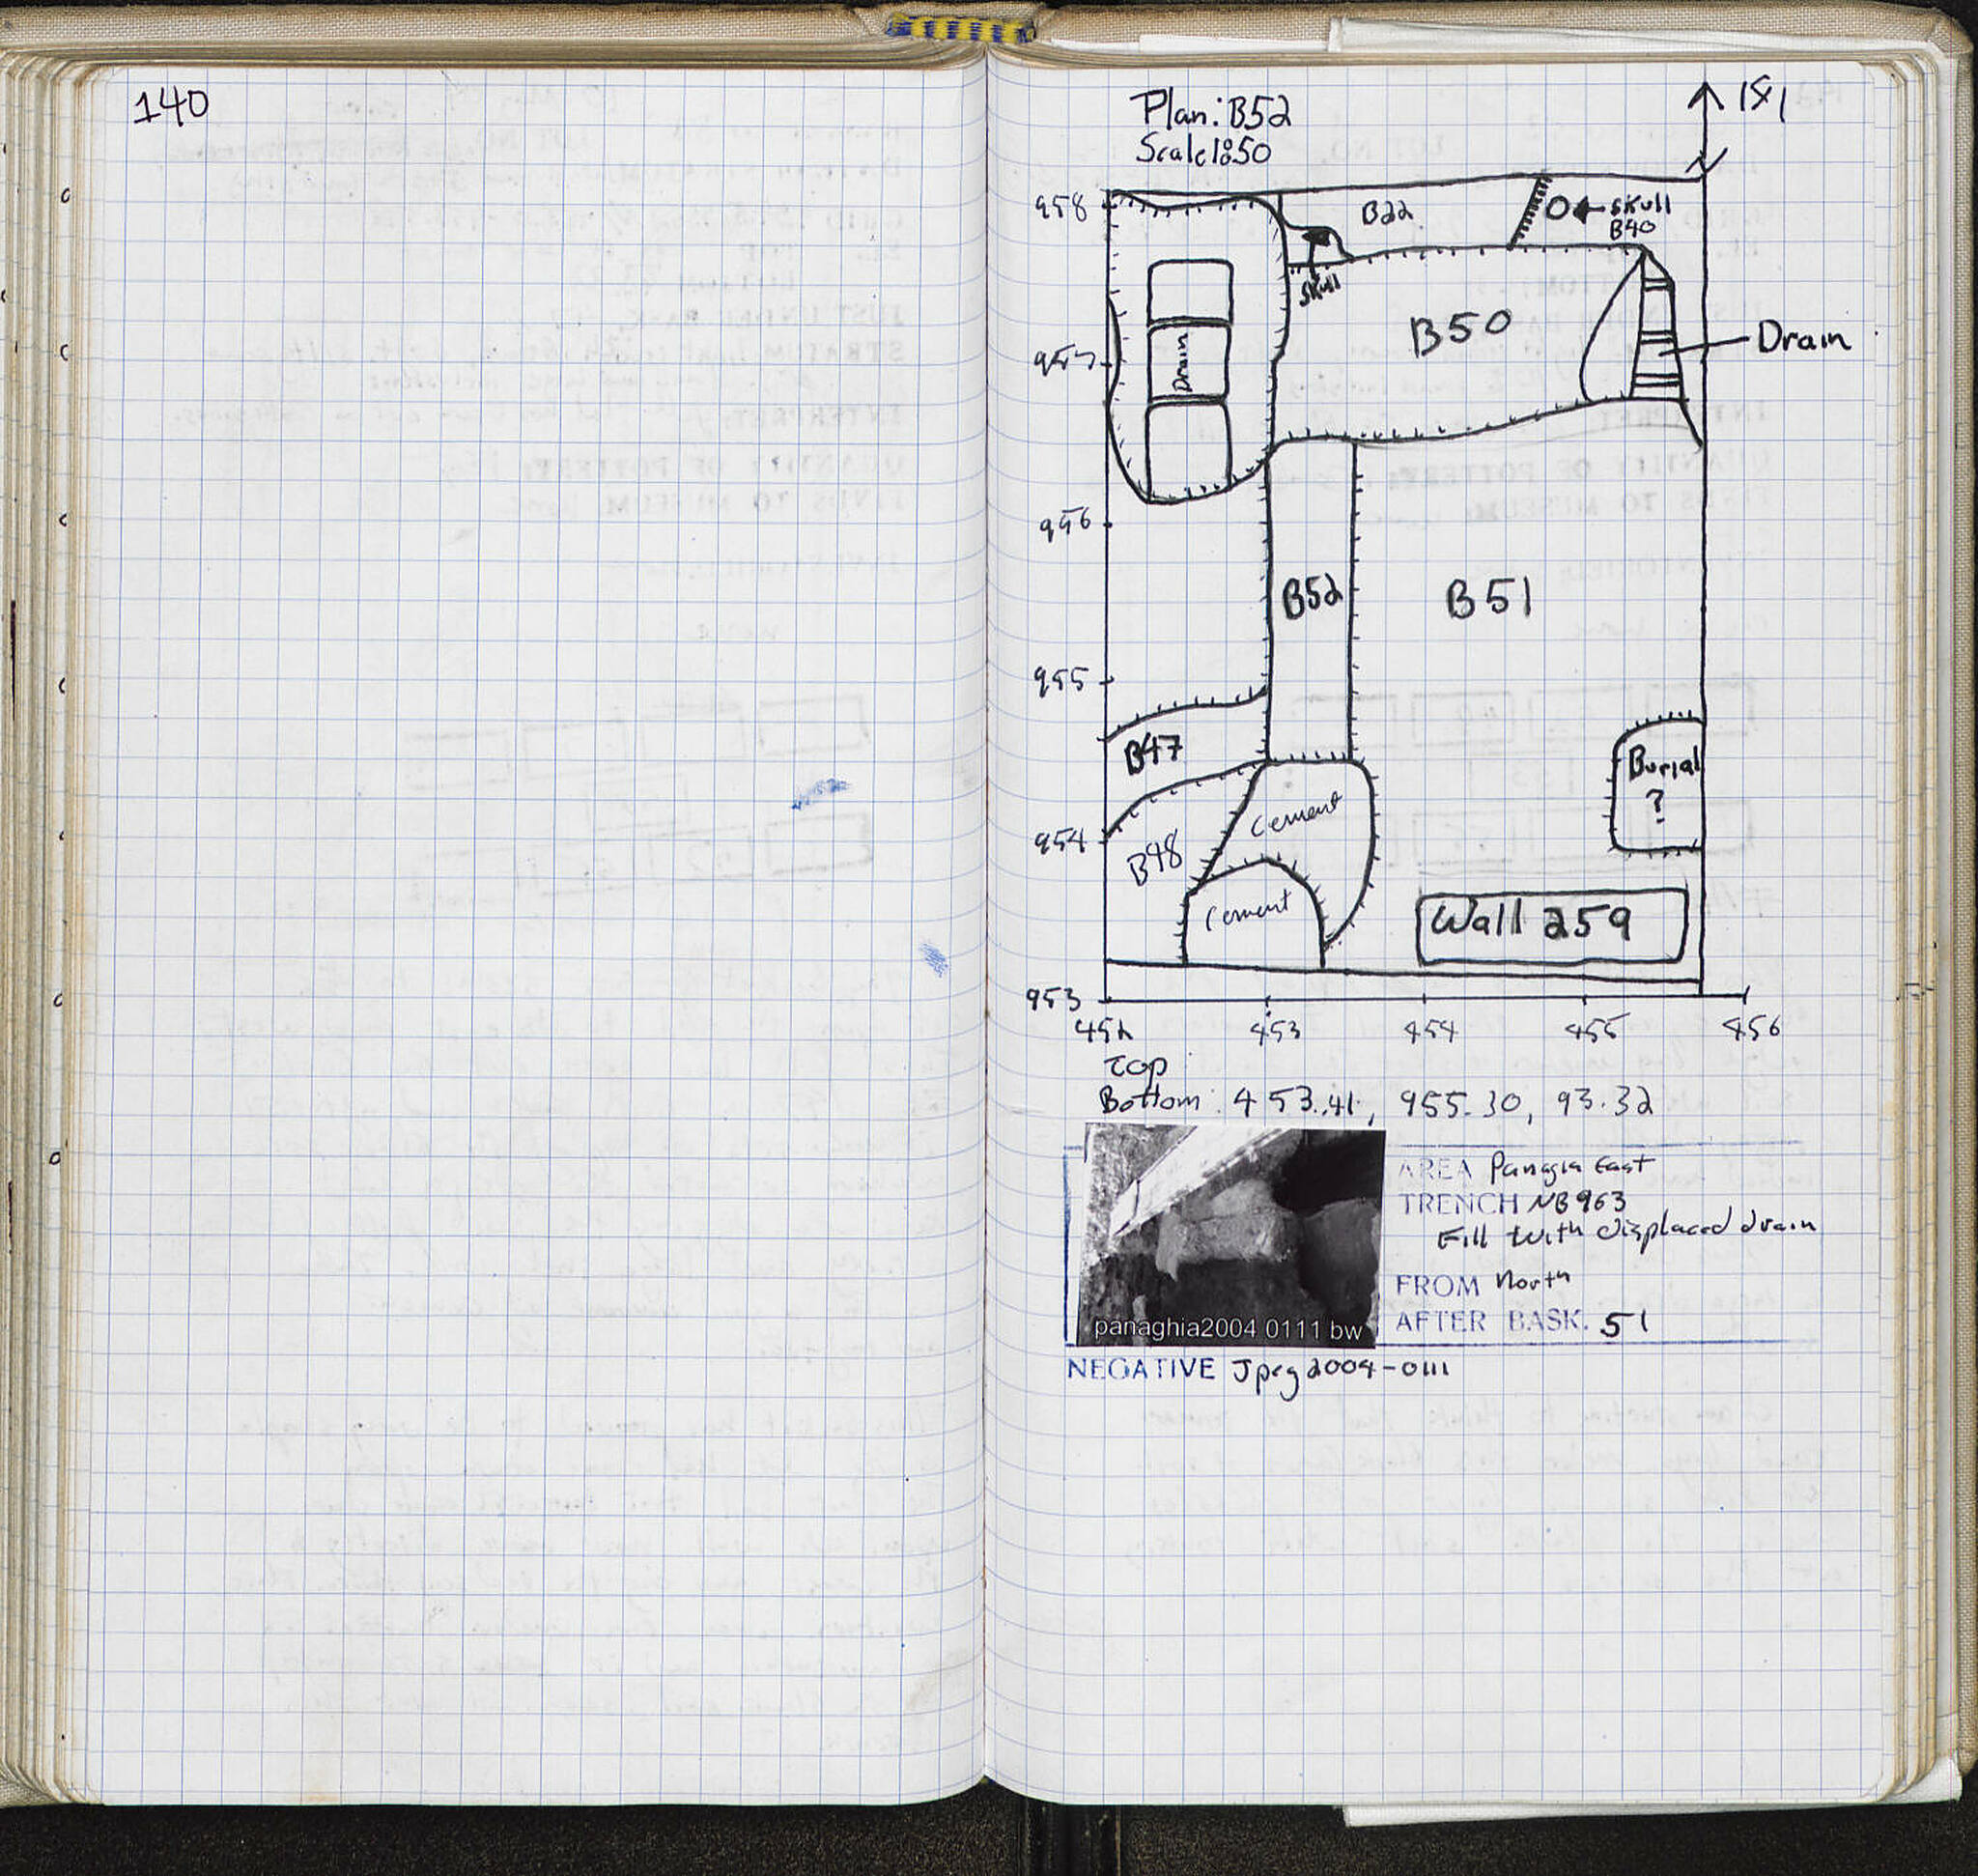 140
Plan: B52
Scale 1:50
N
958
B22
Skull
B40
Skull
957
Drain
B50
Drain
956
B52
B51
955
B47
Burial
?
954
B48
Cement
Cement
Wall 259
953
452
453
454
455
456
Top
Bottom: 453.41, 955.30, 93.32
AREA Panagia East
TRENCH NB963
Fill with displaced drain
FROM North
AFTER BASK. 51
panaghia2004 0111 bw
NEGATIVE Jpeg2004-0111